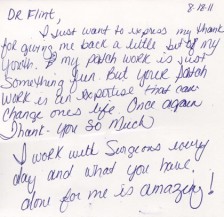 8-18-11
Dr Flint,
I just want to express my thank
for giving me back a little bit of my
youth. My patch work is just
something fun. But your patch
work is an expertise that can
change ones life. Once again
Thank-you so much
I work with surgeons every
day and what you have
done for me is amazing!